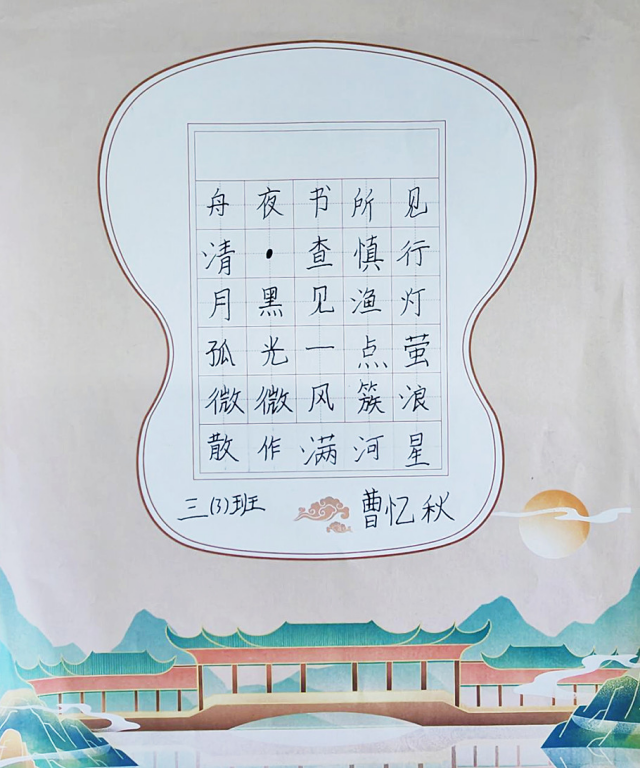 舟夜书所见
清·查慎行
月黑见渔灯
孤光一点萤
微微风簇浪
散作满河星
三(3)班 曹忆秋